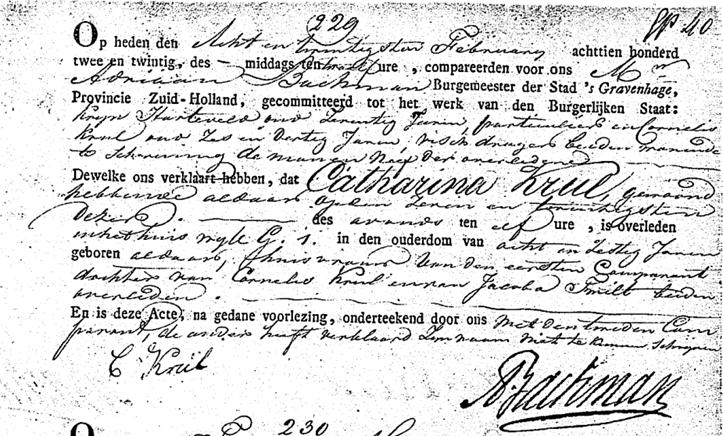 229
Op heden den Acht en twintigsten February achttien honderd
twee en twintig, des — middags ten ure, compareerden voor ons Mr
Adriaan Bachman Burgemeester der Stad 's Gravenhage,
Provincie Zuid-Holland, gecommitteerd tot het werk van den Burgerlijken Staat:
Kryn oud Zeventig Jaren, particulier en Cornelis
Krul oud Zes en dertig Jaren, visch drager beiden wonende
te Schevening de man en Neef der overledene
Dewelke ons verklaart hebben, dat Catharina Krul, gewoond
hebbende aldaar op den Zeven en twintigsten
dezer. des avonds ten elf ure, is overleden
in het huis wyk G. 1. in den ouderdom van acht en Zestig Jaren
geboren aldaar, huisvrouw van den eersten Comparant
dochter van Cornelis Krul en van Jacoba Smilt beiden
overleden.
En is deze Acte, na gedane voorlezing, onderteekend door ons met den tweeden Com
parant, de ander heeft verklaard Zyn naam niet te kunnen Schryven
C Krul
ABachman
230